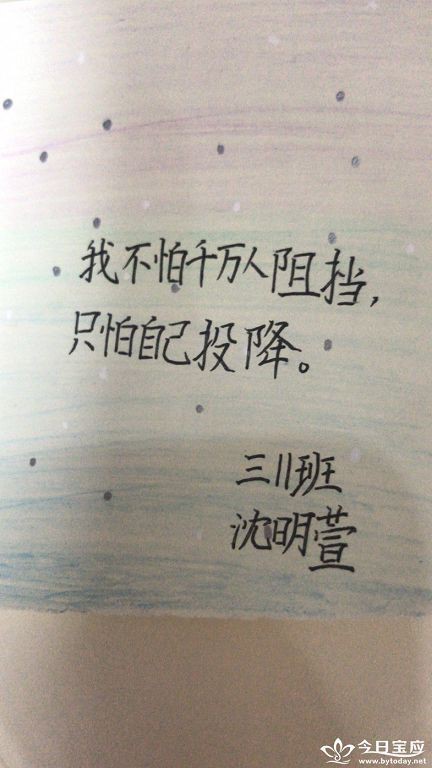 我不怕千万人阻挡，
只怕自己投降。
三11班
沈明萱
今日宝应
www.bytoday.net